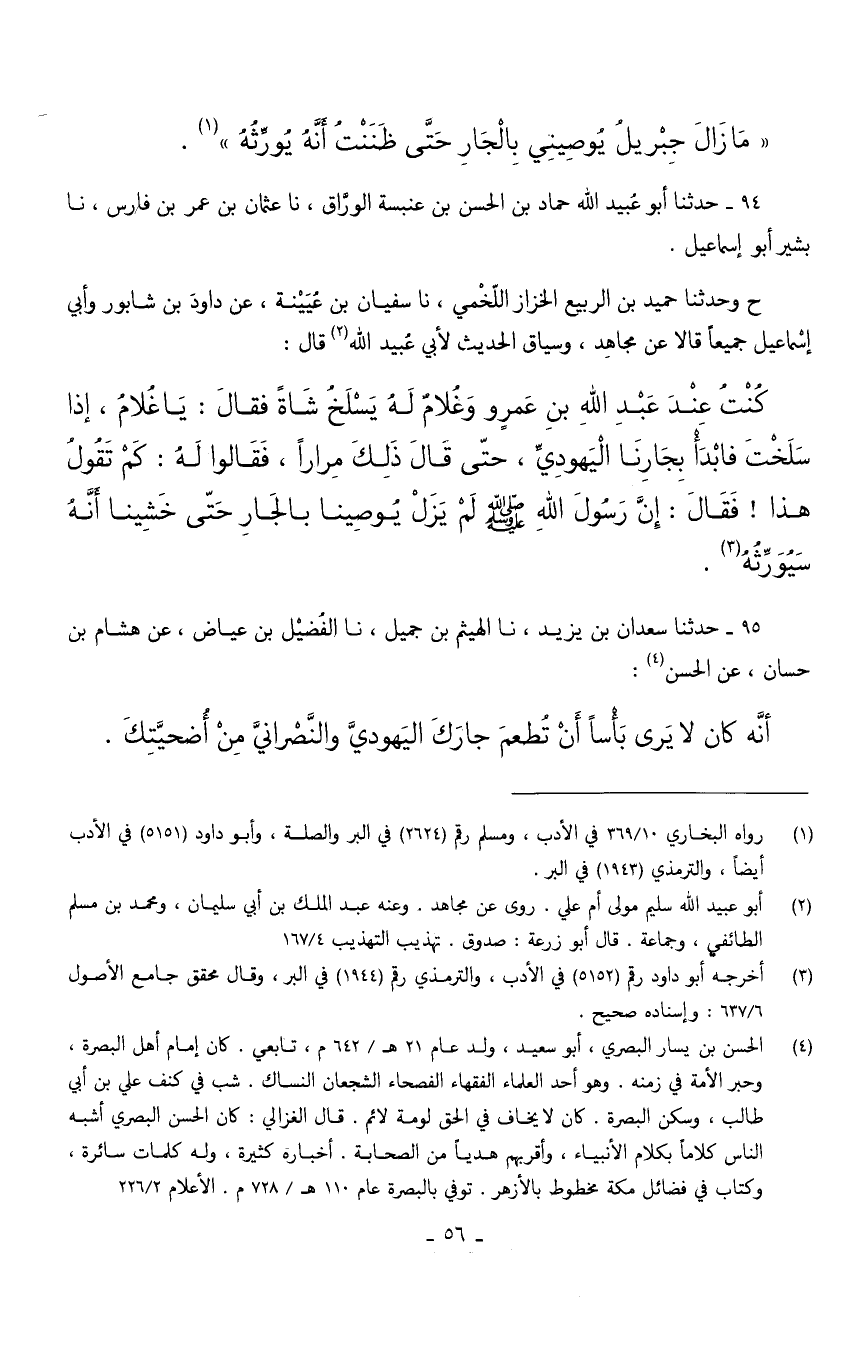 « مَا زَالَ جِبْرِيلُ يُوصِينِي بِالْجَارِ حَتَّى ظَنَنْتُ أَنَّهُ يُورِّثُهُ »(١) .
٩٤ ـ حدثنا أبو عُبيد الله حماد بن الحسن بن عنبسة الورَّاق ، نا عثمان بن عمر بن فارس ، نـا
بشير أبو إسماعيل .
ح وحدثنا حميد بن الربيع الخزاز اللَّخْمي ، نا سفيـان بن عُيَيْنـة ، عن داودَ بن شـابور وأبي
إسْماعيل جميعاً قالا عن مجاهد ، وسياق الحديث لأبي عُبيد الله(٢) قال :
كُنْتُ عِنْـدَ عَبْـدِ اللهِ بنِ عَمرٍو وَغُلامٌ لَـهُ يَسْلَخُ شَـاةً فقـالَ : يَـاغُلامُ ، إذا
سَلَخْتَ فابْدَأْ بِجَارِنَـا الْيَهوديِّ ، حتّى قَـالَ ذَلِـكَ مِراراً ، فَقَـالوا لَـهُ : كَمْ تَقُولُ
هـذا ! فَقَـالَ : إنَّ رَسُولَ اللهِ ﷺ لَمْ يَزَلْ يُـوصِينـا بـالجَـارِ حَتّى خَشِينـا أَنَّـهُ
سَيُوَرِّثُهُ(٣) .
٩٥ ـ حدثنا سعدان بن يزيـد ، نـا الهيثم بن جميل ، نـا الفُضيْل بن عيـاض ، عن هشـام بن
حسان ، عن الحسن(٤) :
أنَّه كان لا يَرى بَأْساً أَنْ تُطعمَ جارَكَ اليَهوديَّ والنَّصْرانيَّ مِنْ أُضحيَّتِكَ .
(١) رواه البخـاري ٣٦٩/١٠ في الأدب ، ومسلم رقم (٢٦٢٤) في البر والصلـة ، وأبـو داود (٥١٥١) في الأدب
أيضاً ، والترمذي (١٩٤٣) في البر .
(٢) أبو عبيد الله سليم مولى أم علي . روى عن مجاهد . وعنه عبـد الملـك بن أبي سليمـان ، ومحمـد بن مسلم
الطائفي ، وجماعة . قال أبو زرعة : صدوق . تهذيب التهذيب ١٦٧/٤
(٣) أخرجـه أبو داود رقم (٥١٥٢) في الأدب ، والترمـذي رقم (١٩٤٤) في البر ، وقـال محقق جـامـع الأصـول
٦٣٧/٦ : وإسناده صحيح .
(٤) الحسن بن يسار البصري ، أبو سعيـد ، ولـد عـام ٢١ هـ / ٦٤٢ م ، تـابعي . كان إمـام أهل البصرة ،
وحبر الأمة في زمنه . وهو أحد العلماء الفقهاء الفصحاء الشجعان النساك . شب في كنف علي بن أبي
طالب ، وسكن البصرة . كان لا يخـاف في الحق لومـة لائم . قـال الغزالي : كان الحسن البصري أشبـه
الناس كلاماً بكلام الأنبيـاء ، وأقربهم هـديـاً من الصحـابـة . أخبـاره كثيرة ، ولـه كلمـات سـائرة ،
وكتاب في فضائل مكة مخطوط بالأزهر . توفي بالبصرة عام ١١٠ هـ / ٧٢٨ م . الأعلام ٢٢٦/٢
ـ ٥٦ ـ